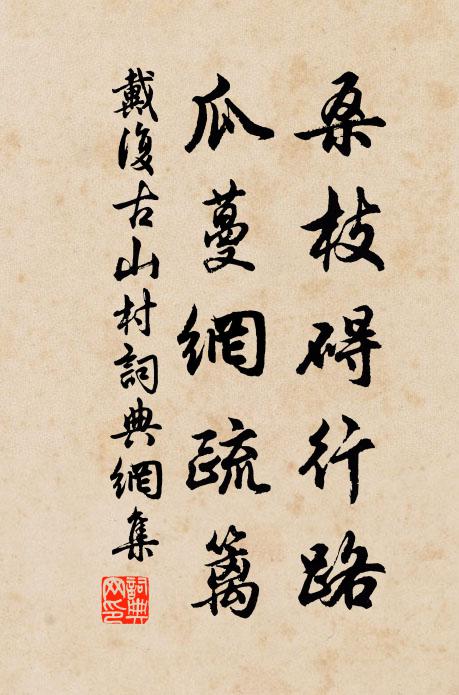 桑枝碍行路
瓜蔓網疏籬
戴復古山村詞典網集
詞典网印